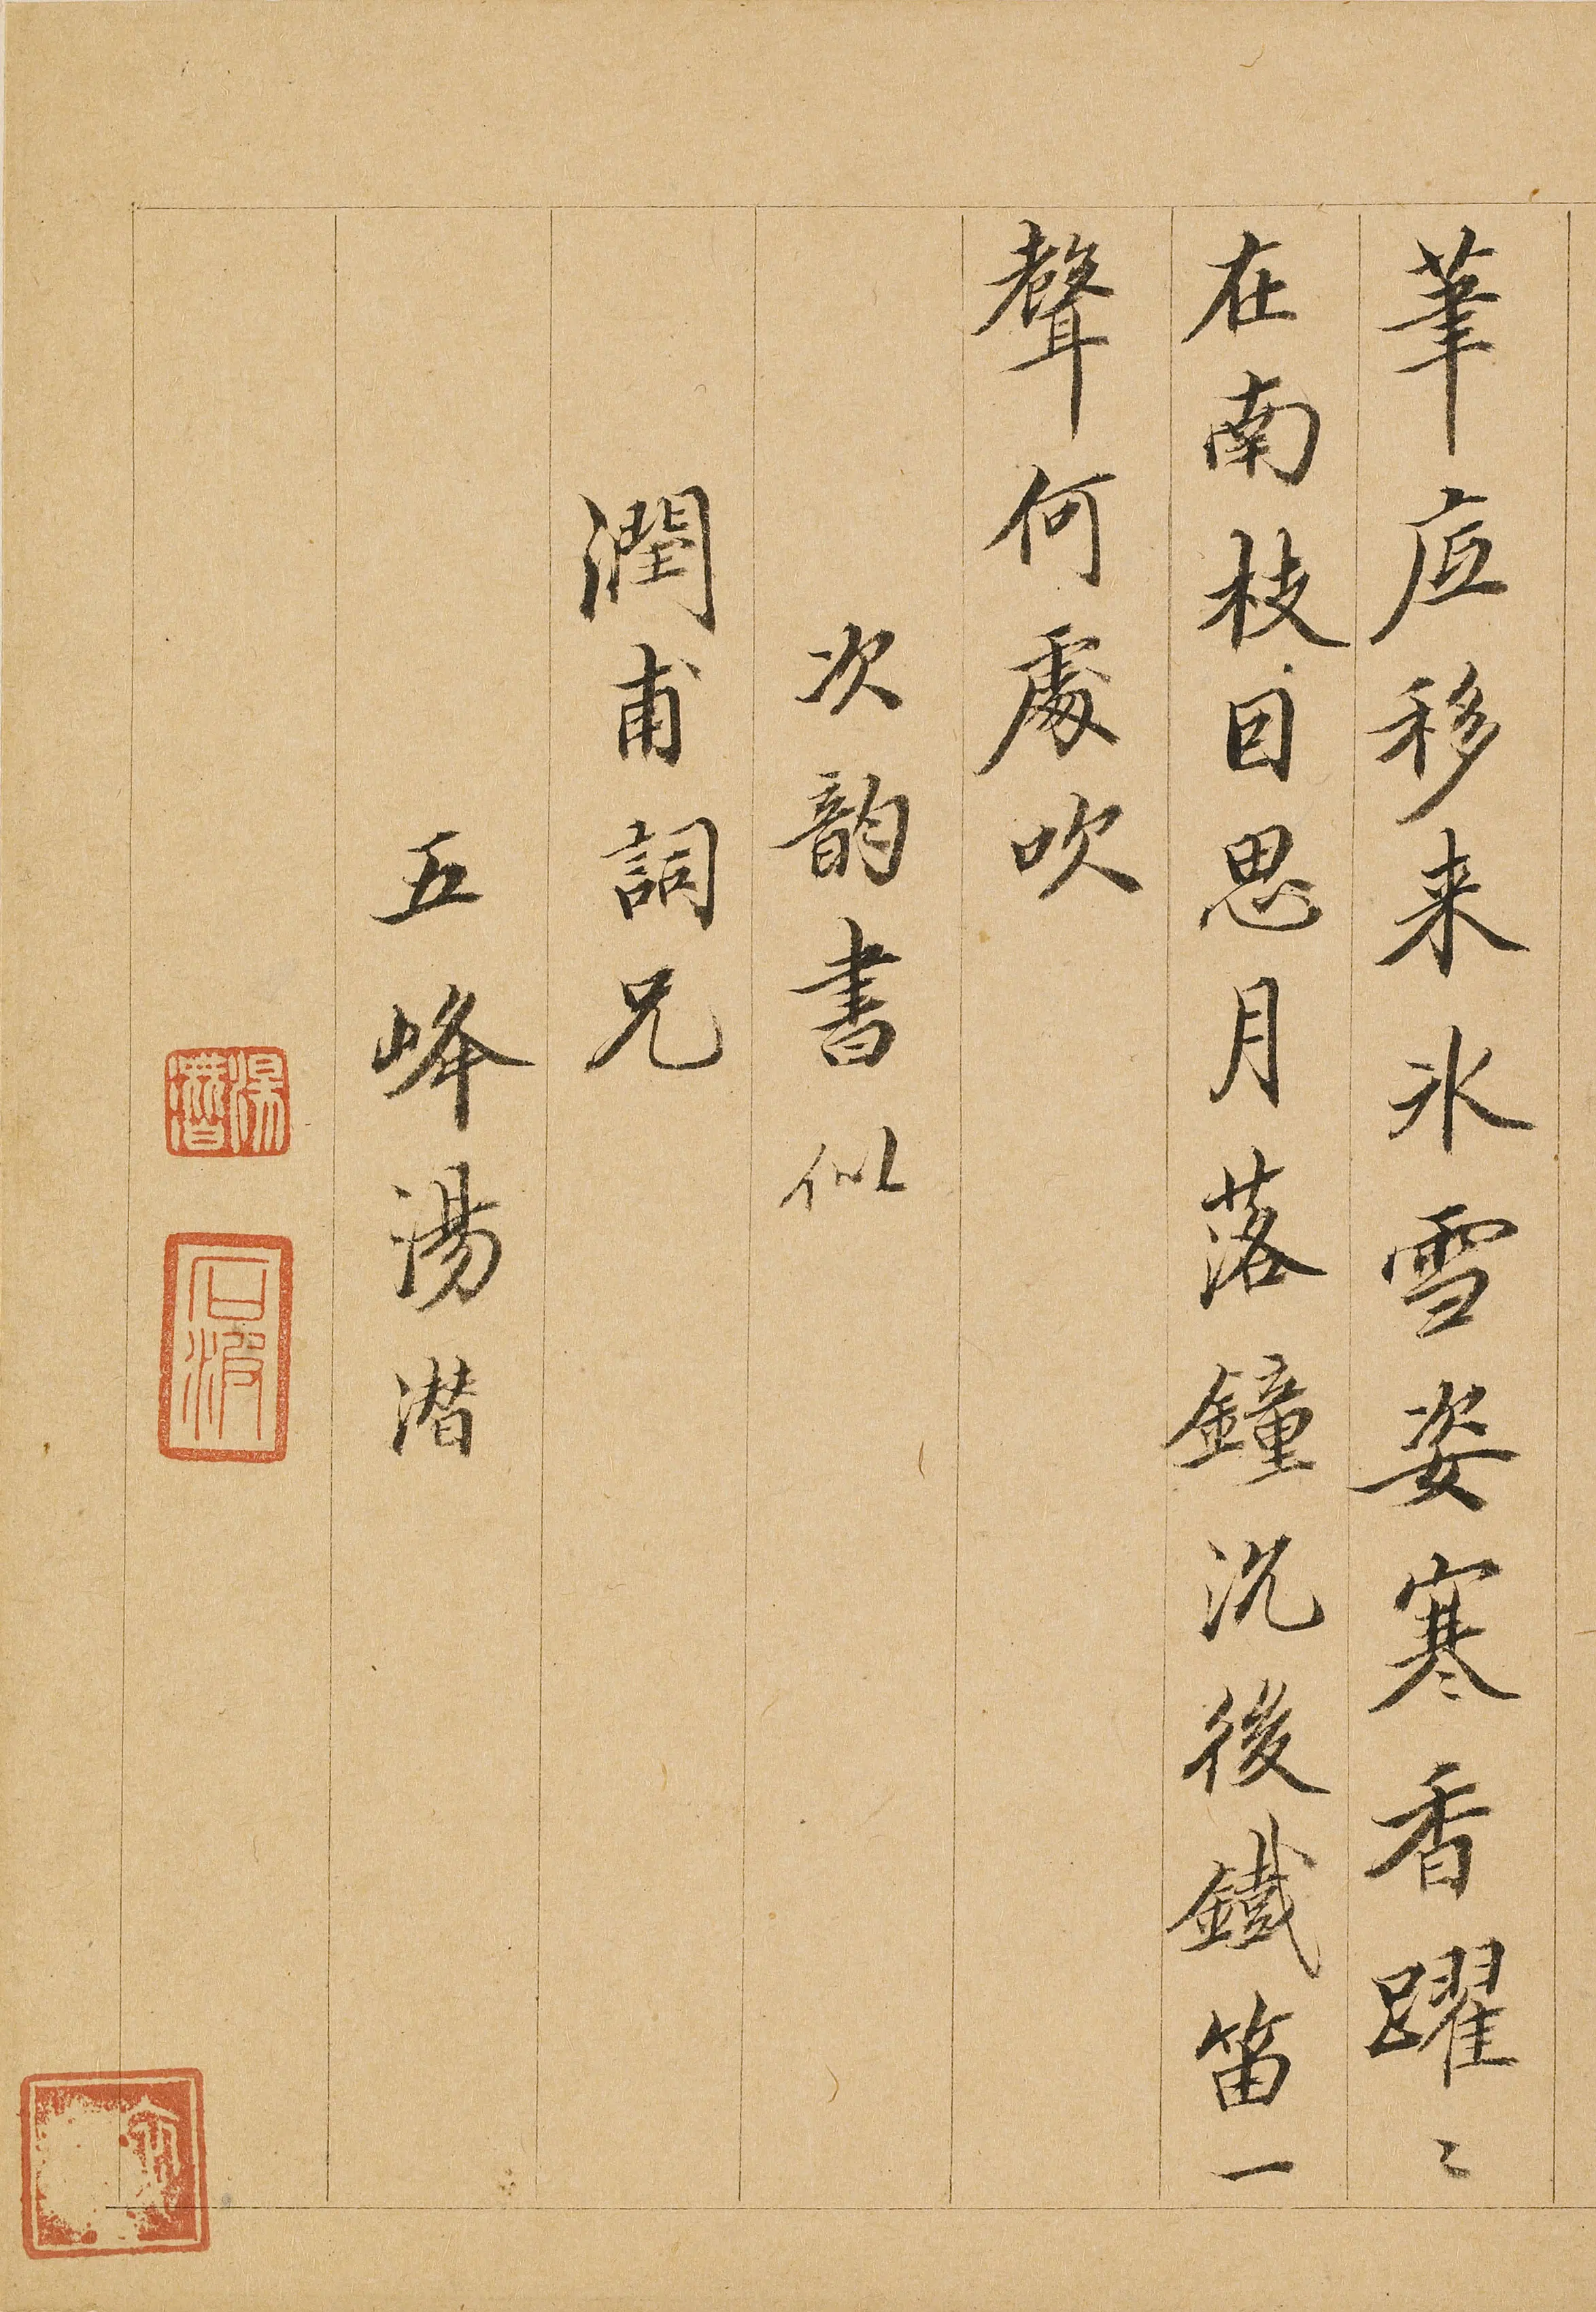 筆底移来氷雪姿寒香躍〻
在南枝因思月落鐘沉後鐵笛一
聲何處吹
次韵書似
潤甫詞兄
五峰湯潜
湯潛
石波